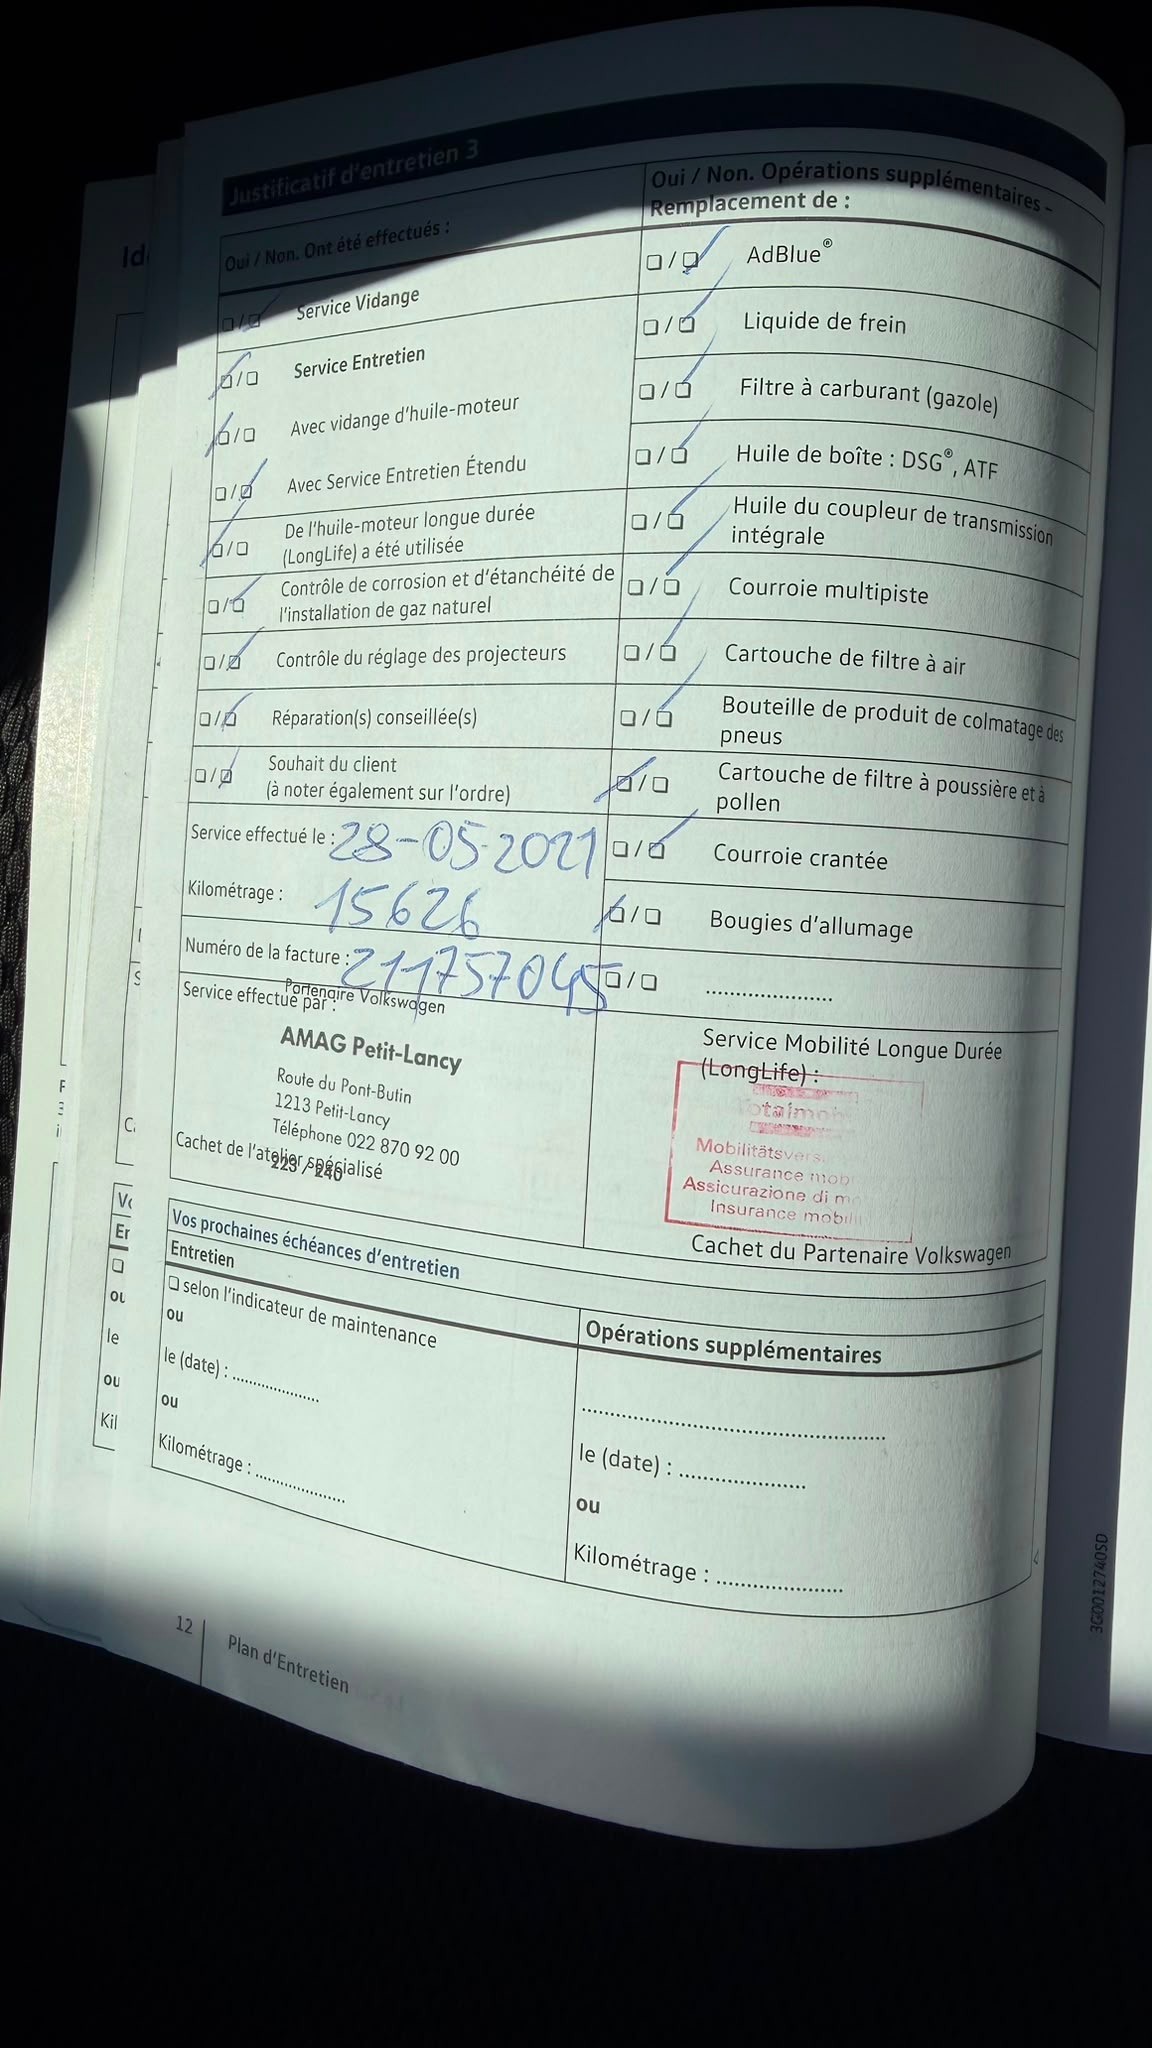 Justificatif d'entretien 3
Oui / Non. Ont été effectués :
❏ / ❏ Service Vidange
❏ / ❏ Service Entretien
❏ / ❏ Avec vidange d'huile-moteur
❏ / ❏ Avec Service Entretien Étendu
❏ / ❏ De l'huile-moteur longue durée
(LongLife) a été utilisée
❏ / ❏ Contrôle de corrosion et d'étanchéité de
l'installation de gaz naturel
❏ / ❏ Contrôle du réglage des projecteurs
❏ / ❏ Réparation(s) conseillée(s)
❏ / ❏ Souhait du client
(à noter également sur l'ordre)
Service effectué le : 28-05-2021
Kilométrage : 15626
Numéro de la facture : 211757045
Service effectué par :
Partenaire Volkswagen
AMAG Petit-Lancy
Route du Pont-Butin
1213 Petit-Lancy
Téléphone 022 870 92 00
223 / 240
Cachet de l'atelier spécialisé
Oui / Non. Opérations supplémentaires –
Remplacement de :
❏ / ❏ AdBlue®
❏ / ❏ Liquide de frein
❏ / ❏ Filtre à carburant (gazole)
❏ / ❏ Huile de boîte : DSG®, ATF
❏ / ❏ Huile du coupleur de transmission
intégrale
❏ / ❏ Courroie multipiste
❏ / ❏ Cartouche de filtre à air
❏ / ❏ Bouteille de produit de colmatage des
pneus
❏ / ❏ Cartouche de filtre à poussière et à
pollen
❏ / ❏ Courroie crantée
❏ / ❏ Bougies d'allumage
❏ / ❏ ....................
Service Mobilité Longue Durée
(LongLife) :
Totalmob
Mobilitätsvers
Assurance mob
Assicurazione di m
Insurance mobili
Cachet du Partenaire Volkswagen
Vos prochaines échéances d'entretien
Entretien
❏ selon l'indicateur de maintenance
ou
le (date) : ....................
ou
Kilométrage : ....................
Opérations supplémentaires
................................................
le (date) : ....................
ou
Kilométrage : ....................
12
Plan d'Entretien
3G0012740SD